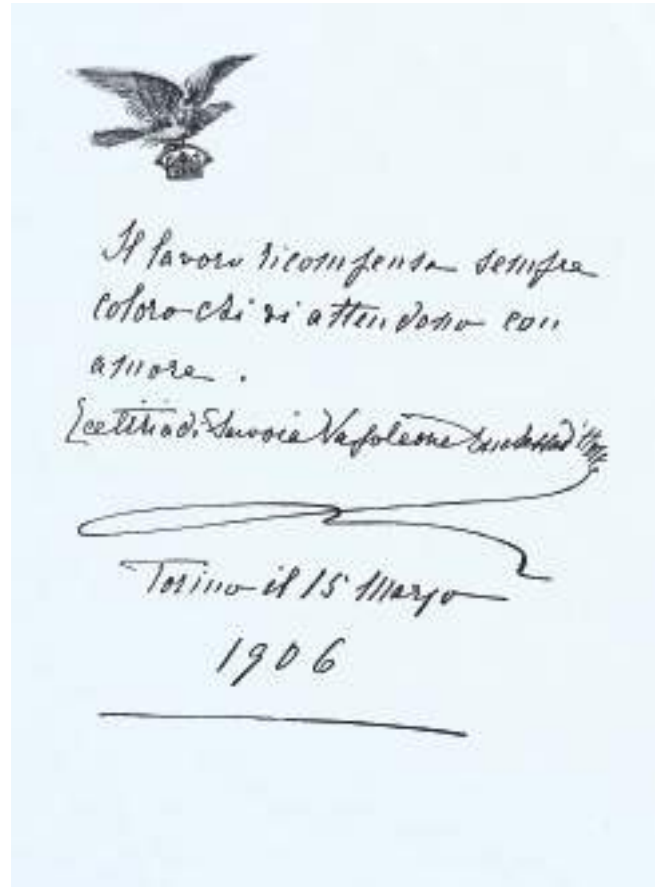 Il lavoro ricompensa sempre
coloro chi vi attendono con
amore.
Laetitia di Savoia Napoleone Duchessa d'
Torino il 15 Marzo
1906